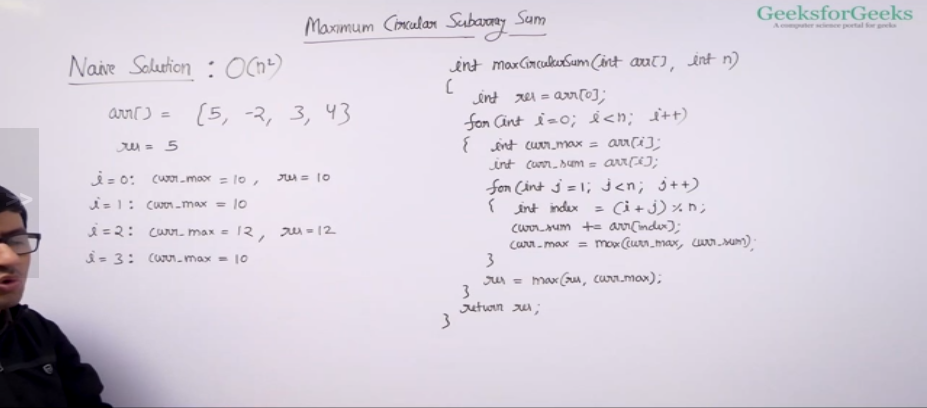 Maximum Circular Subarray Sum
GeeksforGeeks
A computer science portal for geeks
Naive Solution : O(n²)
arr[] = {5, -2, 3, 4}
res = 5
i=0: curr_max = 10, res = 10
i=1: curr_max = 10
i=2: curr_max = 12, res = 12
i=3: curr_max = 10
int maxCircularSum(int arr[], int n)
{
int res = arr[0];
for(int i=0; i<n; i++)
{ int curr_max = arr[i];
int curr_sum = arr[i];
for(int j=1; j<n; j++)
{ int index = (i+j) % n;
curr_sum += arr[index];
curr_max = max(curr_max, curr_sum);
}
res = max(res, curr_max);
}
return res;
}